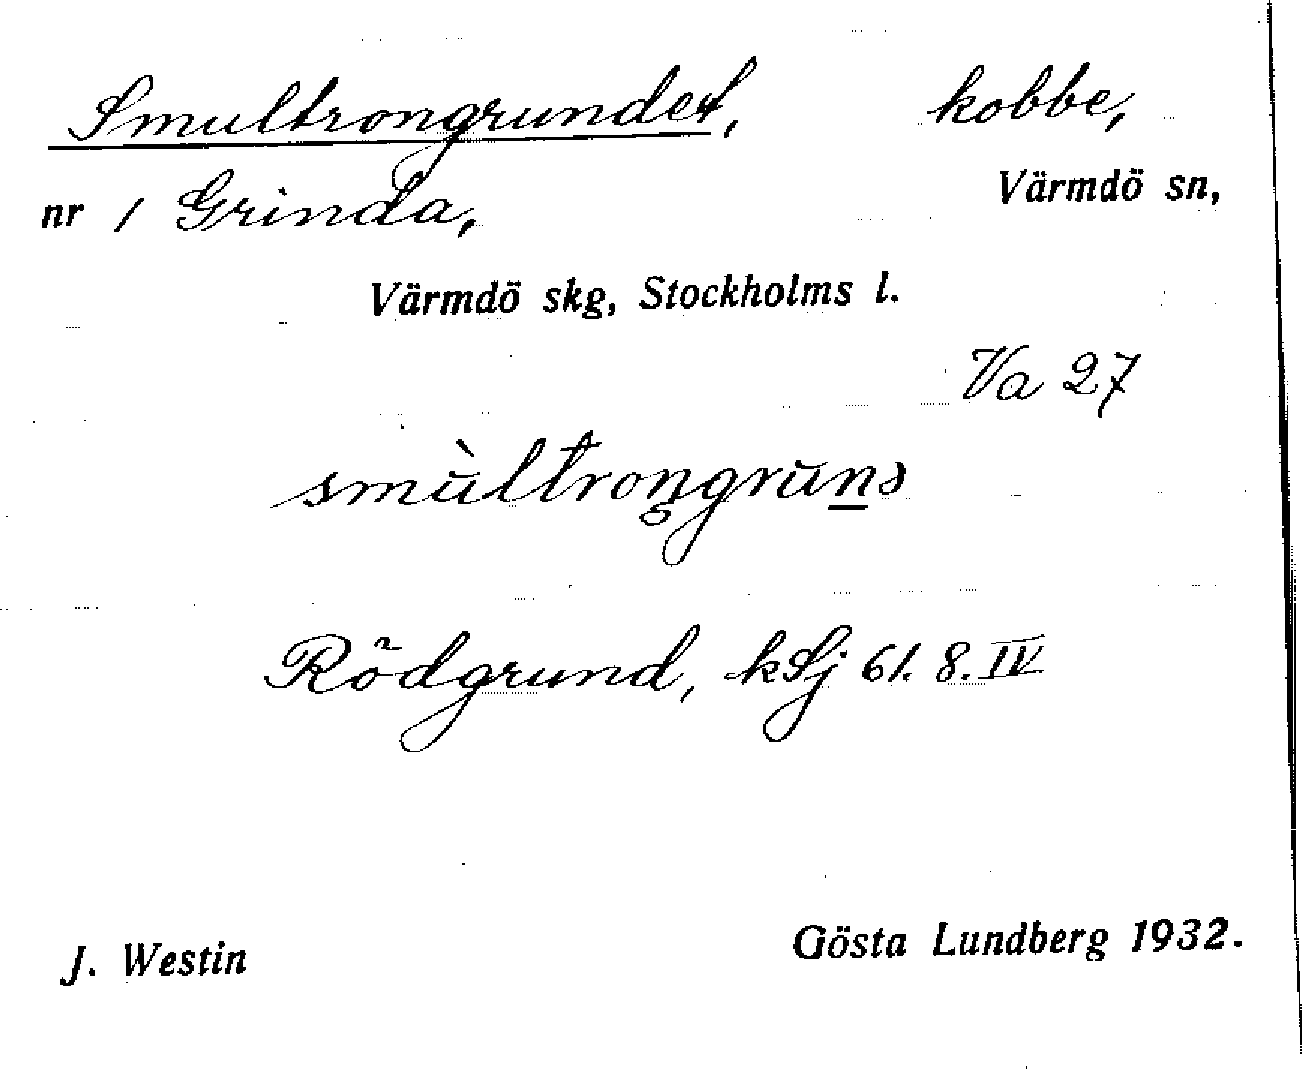 Smultrongrundet, kobbe,
nr 1 Grinda, Värmdö sn,
Värmdö skg, Stockholms l.
Va 27
Rödgrund, kSj 61. 8. IV
J. Westin Gösta Lundberg 1932.